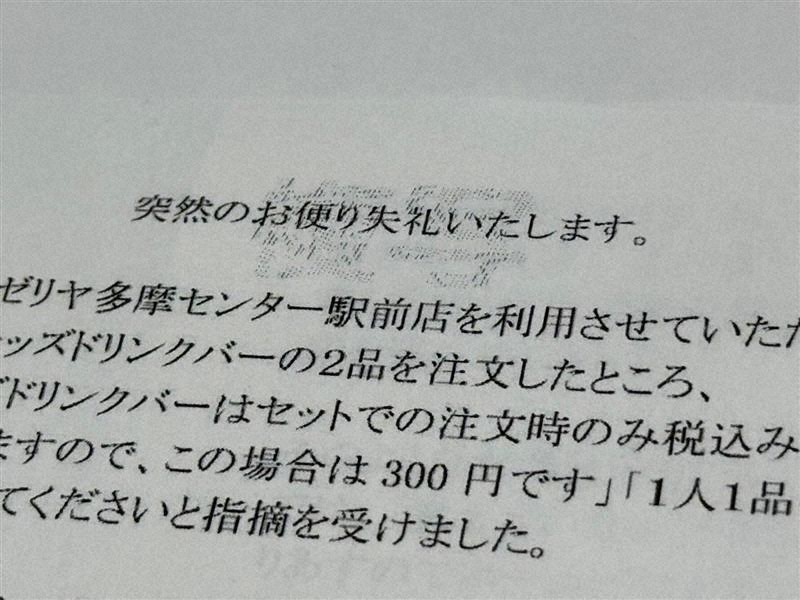 突然のお便り失礼いたします。
ゼリヤ多摩センター駅前店を利用させていただ
ッズドリンクバーの2品を注文したところ、
ドリンクバーはセットでの注文時のみ税込み
ますので、この場合は300円です」「1人1品
てくださいと指摘を受けました。